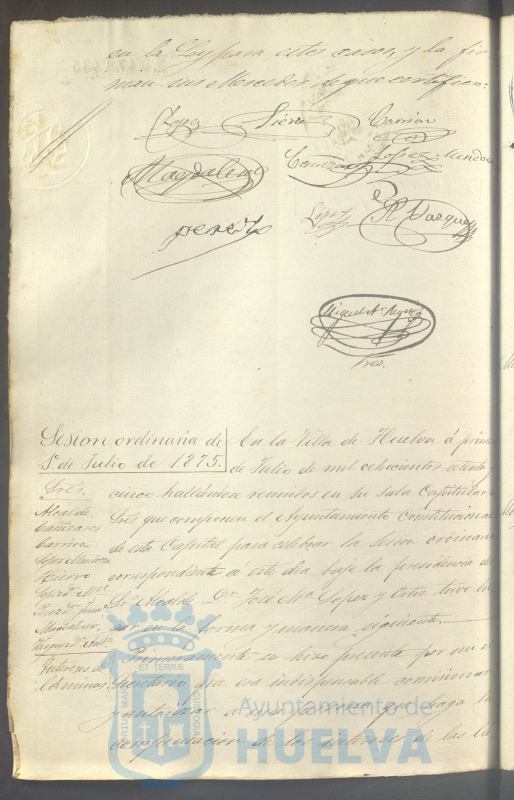 en la Ley para estos casos, y la fir-
man sus Mercedes de que certifico:
Lopez Carrion
Magdalena Lopez Mendoza
Lopez R Vazquez
perez
Miguel
Srio.
Sesion ordinaria de
1º de Julio de 1875.
Sres.
Alcalde
Cañizares
Carrion
Lopez Mendoza
Hierro
Lopez Dn. Mel.
Perez Dn. Juan
Magdalena
Vazquez Dn. Anto.
Intereses de
láminas
En la Villa de Huelva á prime
de Julio de mil ochocientos setenta y
cinco hallándose reunidos en su Sala Capitular
Sres que componen el Ayuntamiento Constitucional
de esta Capital para celebrar la sesion ordinaria
correspondiente á este dia bajo la presidencia del
Sr Alcalde Dn. José Mª Lopez y tuvo lu
gar en la forma y manera siguiente.
Primeramente se hizo presente por mi el
Secretario que era indispensable comisionar
y autorizar a persona que haga la
de los intereses de las lá
Ayuntamiento de
HUELVA